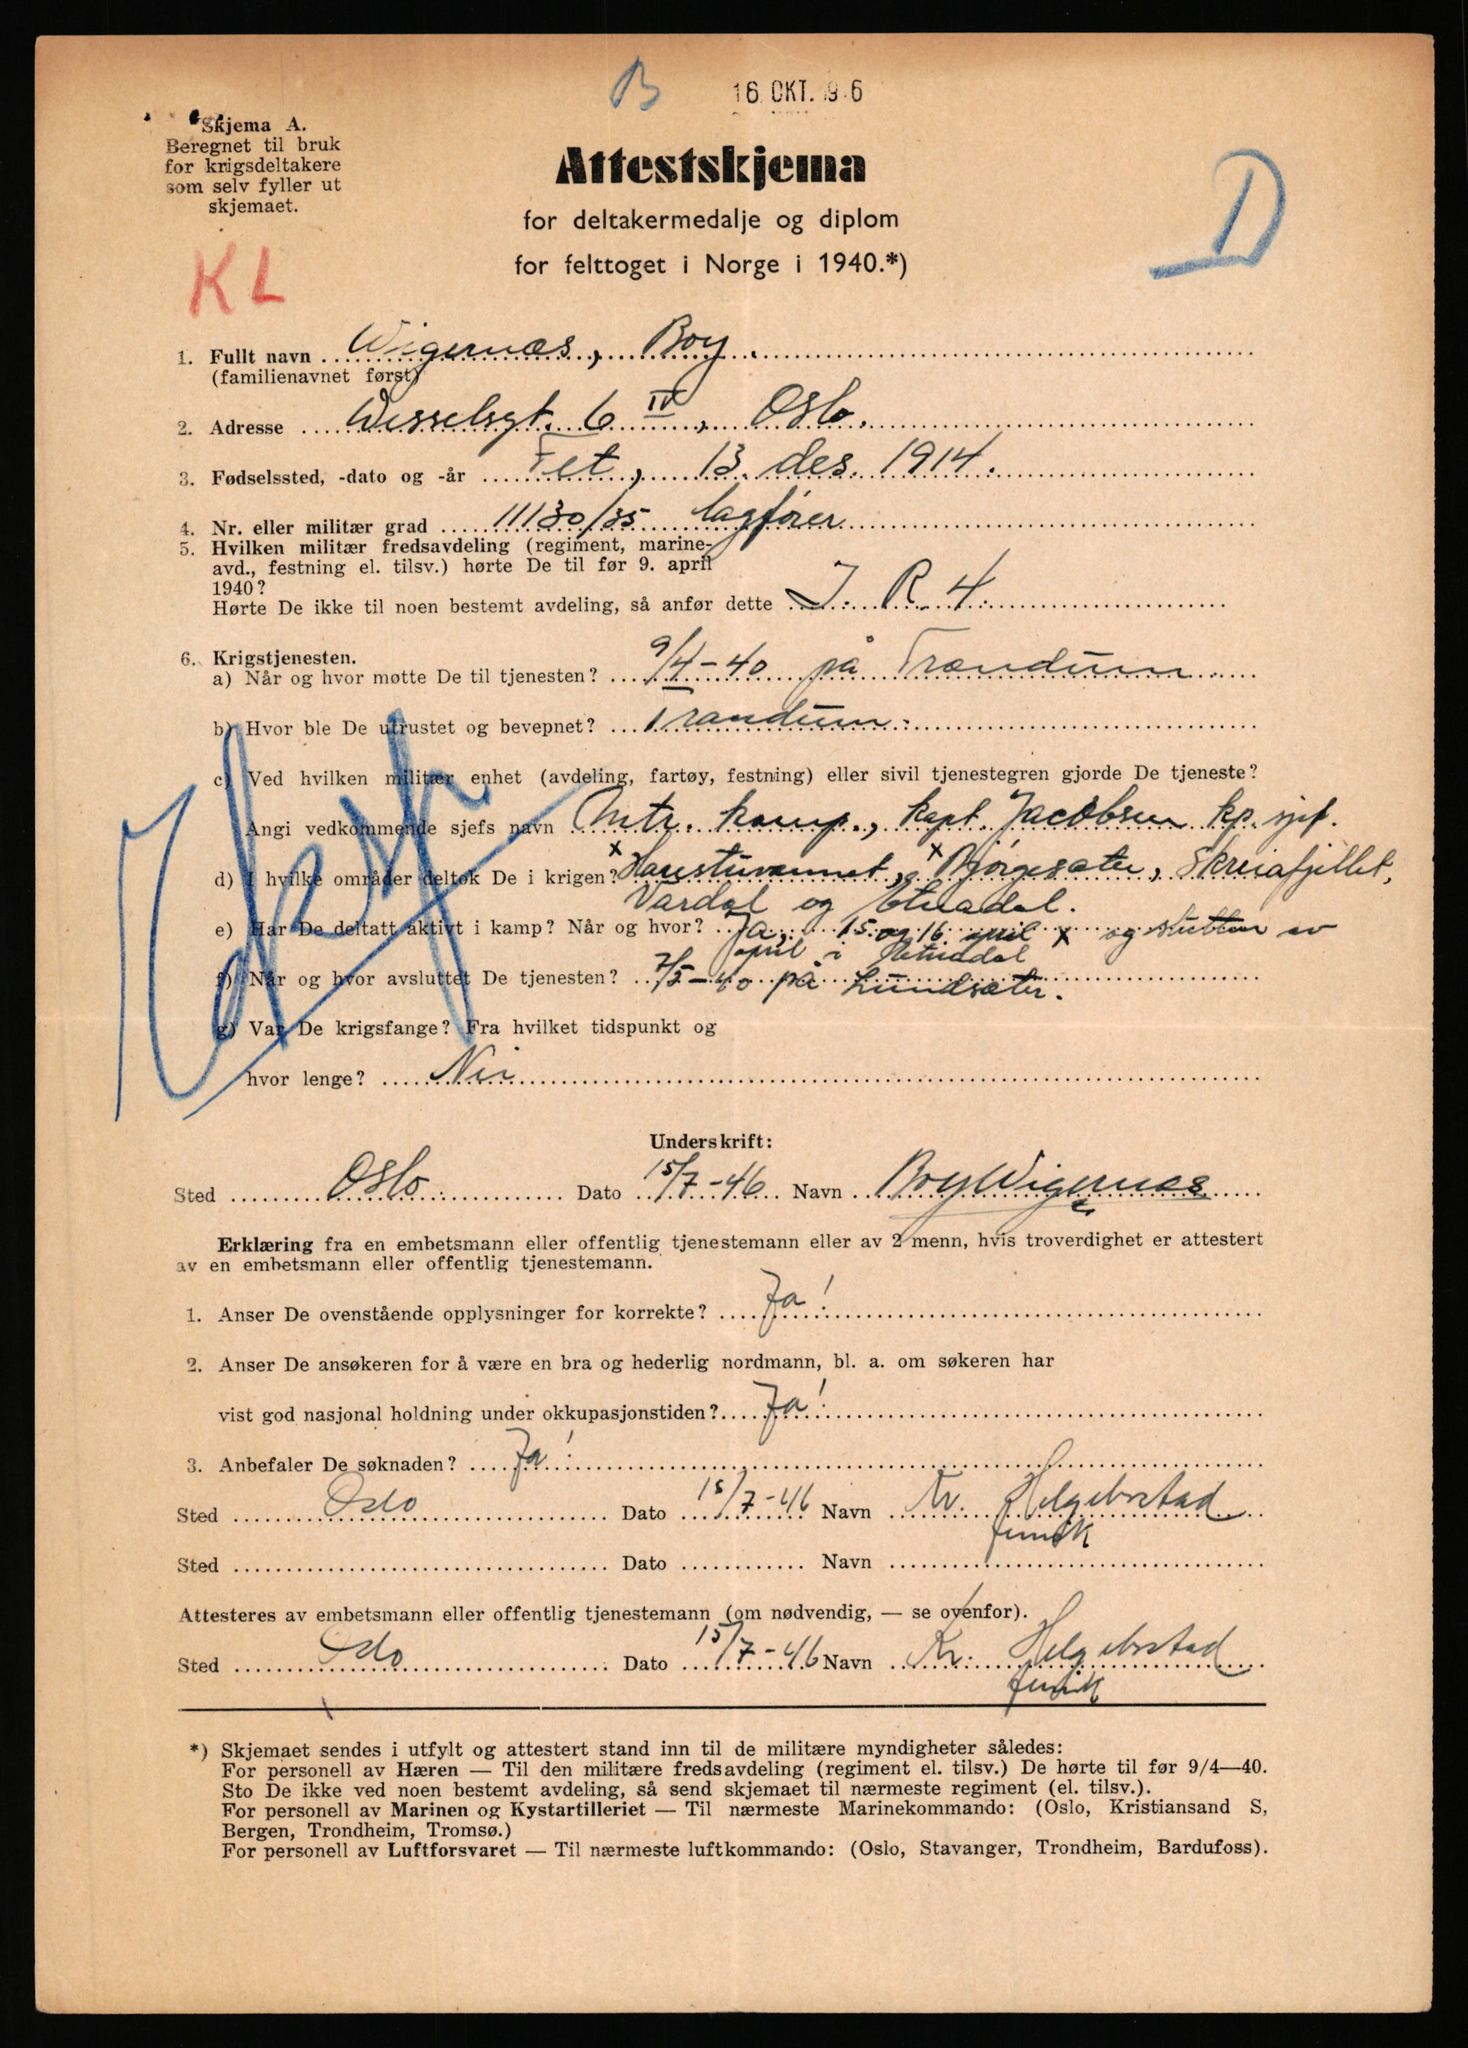 B
16 OKT. 1946
Skjema A.
Beregnet til bruk
for krigsdeltakere
som selv fyller ut
skjemaet.
Attestskjema
for deltakermedalje og diplom
for felttoget i Norge i 1940.*)
D
KL
1. Fullt navn Wigernæs, Boy.
(familienavnet først)
2. Adresse Wesselsgt. 6 IV, Oslo.
3. Fødselssted, -dato og -år Fet, 13. des. 1914.
4. Nr. eller militær grad 11130/35 lagfører
5. Hvilken militær fredsavdeling (regiment, marine-
avd., festning el. tilsv.) hørte De til før 9. april
1940?
Hørte De ikke til noen bestemt avdeling, så anfør dette I. R. 4.
6. Krigstjenesten.
a) Når og hvor møtte De til tjenesten? 9/4-40 på Trandum
b) Hvor ble De utrustet og bevepnet? Trandum.
c) Ved hvilken militær enhet (avdeling, fartøy, festning) eller sivil tjenestegren gjorde De tjeneste?
Angi vedkommende sjefs navn Mtr. komp., kapt. Jacobsen kp. sjef.
d) I hvilke områder deltok De i krigen? x Harestuvannet, x Bjørgesæter, Skreiafjellet,
Vardal og Etnadal.
e) Har De deltatt aktivt i kamp? Når og hvor? Ja, 15. og 16. april x og slutten av
april i Etnadal
f) Når og hvor avsluttet De tjenesten? 2/5-40 på Lundsæter.
g) Var De krigsfange? Fra hvilket tidspunkt og
hvor lenge? Nei
Underskrift:
Sted Oslo Dato 15/7-46 Navn Boy Wigernæs
Erklæring fra en embetsmann eller offentlig tjenestemann eller av 2 menn, hvis troverdighet er attestert
av en embetsmann eller offentlig tjenestemann.
1. Anser De ovenstående opplysninger for korrekte? Ja!
2. Anser De ansøkeren for å være en bra og hederlig nordmann, bl. a. om søkeren har
vist god nasjonal holdning under okkupasjonstiden? Ja!
3. Anbefaler De søknaden? Ja!
Sted Oslo Dato 15/7-46 Navn Kr. Helgebostad
fenrik
Sted Dato Navn
Attesteres av embetsmann eller offentlig tjenestemann (om nødvendig, — se ovenfor).
Sted Oslo Dato 15/7-46 Navn Kr. Helgebostad
fenrik
*) Skjemaet sendes i utfylt og attestert stand inn til de militære myndigheter således:
For personell av Hæren — Til den militære fredsavdeling (regiment el. tilsv.) De hørte til før 9/4—40.
Sto De ikke ved noen bestemt avdeling, så send skjemaet til nærmeste regiment (el. tilsv.).
For personell av Marinen og Kystartilleriet — Til nærmeste Marinekommando: (Oslo, Kristiansand S,
Bergen, Trondheim, Tromsø.)
For personell av Luftforsvaret — Til nærmeste luftkommando: (Oslo, Stavanger, Trondheim, Bardufoss).